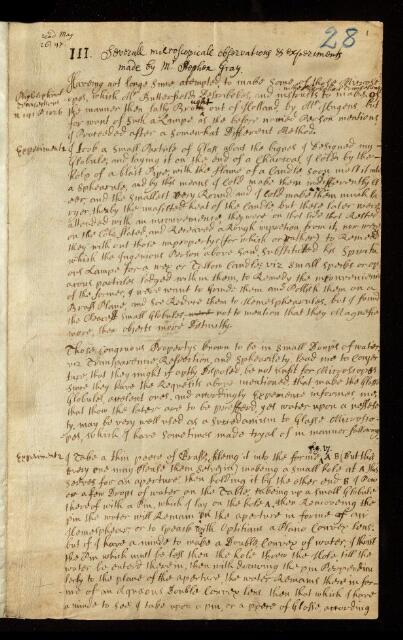 read May
26: 97
28
1
III. Severall microscopicall observations & experiments
made by Mr Stephen Gray.
Philosophical
Transactions
Having not longe since atempted to make some of those Microsc
opes, which Mr Butterfield Describes, and
the manner then lately Brought out of Holland, by Mr Hugens but
for want of such a Lampe as the before named Person mentions
I Proceeded after a somewhat Different Method.
Experiment 1
I took a small Particle of Glass about the bignes of I designed my
Globule, and laying it on the end of a Charcoal I could by the
help of a blast Pipe, with the flame of a Candle, soon melt it into
a sphærule, and by this means I could make them indifferently cl
eer, and the smallest very Round, and I could make them much la
rger then by the unassisted heat of the candle but these larer were
attended with an inconvenience, they were on that side that Rested
on the Cole flated, and Received a Rough impression from it, nor were
they without those imperfections for which to Remedie
which the Ingenious Person above hand, substituted his Spirit of
ous Lampe for a wax or Tallow Candle, viz small specks or op
acous particles lodged within them, to Remedy the inconveniencie
of the former, I were want to Grinde them and Pollish them on a
Brass Plane, and soe Reduce them to Hemesphærules, but I found
the Choicest small Globules not to mention that they Magnifie
more, shew objects more Distinctly.
Those congruous Propertys known to be in small Drops of water,
viz Transparencie, Refraction, and sphericity, lead me to conjec
ture that they might if aptly Disposed, be not unfit for Microscopes,
since they have the Requisits above mentioned that make the Glass
Globules, excelent ones, and accordingly Experience informes me,
that thow the later are to be preffered, yet water upon a necessi
ty, may be very well used as a succedanium to Glasse Microsco
pes, which I have sometimes made tryal of in manner following
Fig. IV.
Experiment 2
I Take a thin peece of Brass, fileing it into the forme A B But this
every one may please them selves in making a small hole at A this
serves for an aperture, then holding it by the other end B I Pow
er a few Drops of water on the Table, takeing up a small Globule
thereof with a Pin, which I lay on the hole A then Removeing the
pin the water will Remain on the aperture in forme of an
Hemesphere or to speake with Optitians a Plano Convex lens
but if I have a minde to make a Double Convex of water, I thrust
the Pin which must be less then the hole throw the Hole till the
water be entered therein, then with Drawing the Pin Perpendicu
larly to the plane of the aperture the water Remains there in for
me of an aqueous Double Convex lens then that which I have
a minde to see I take upon a pin, or a peece of Glasse according